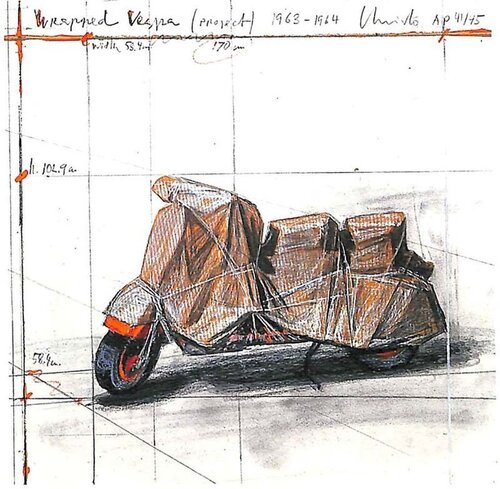 Wrapped Vespa (project) 1963-1964 Christo AP 41/75
width 58.4cm 170 cm
h. 102.9cm
58.4cm